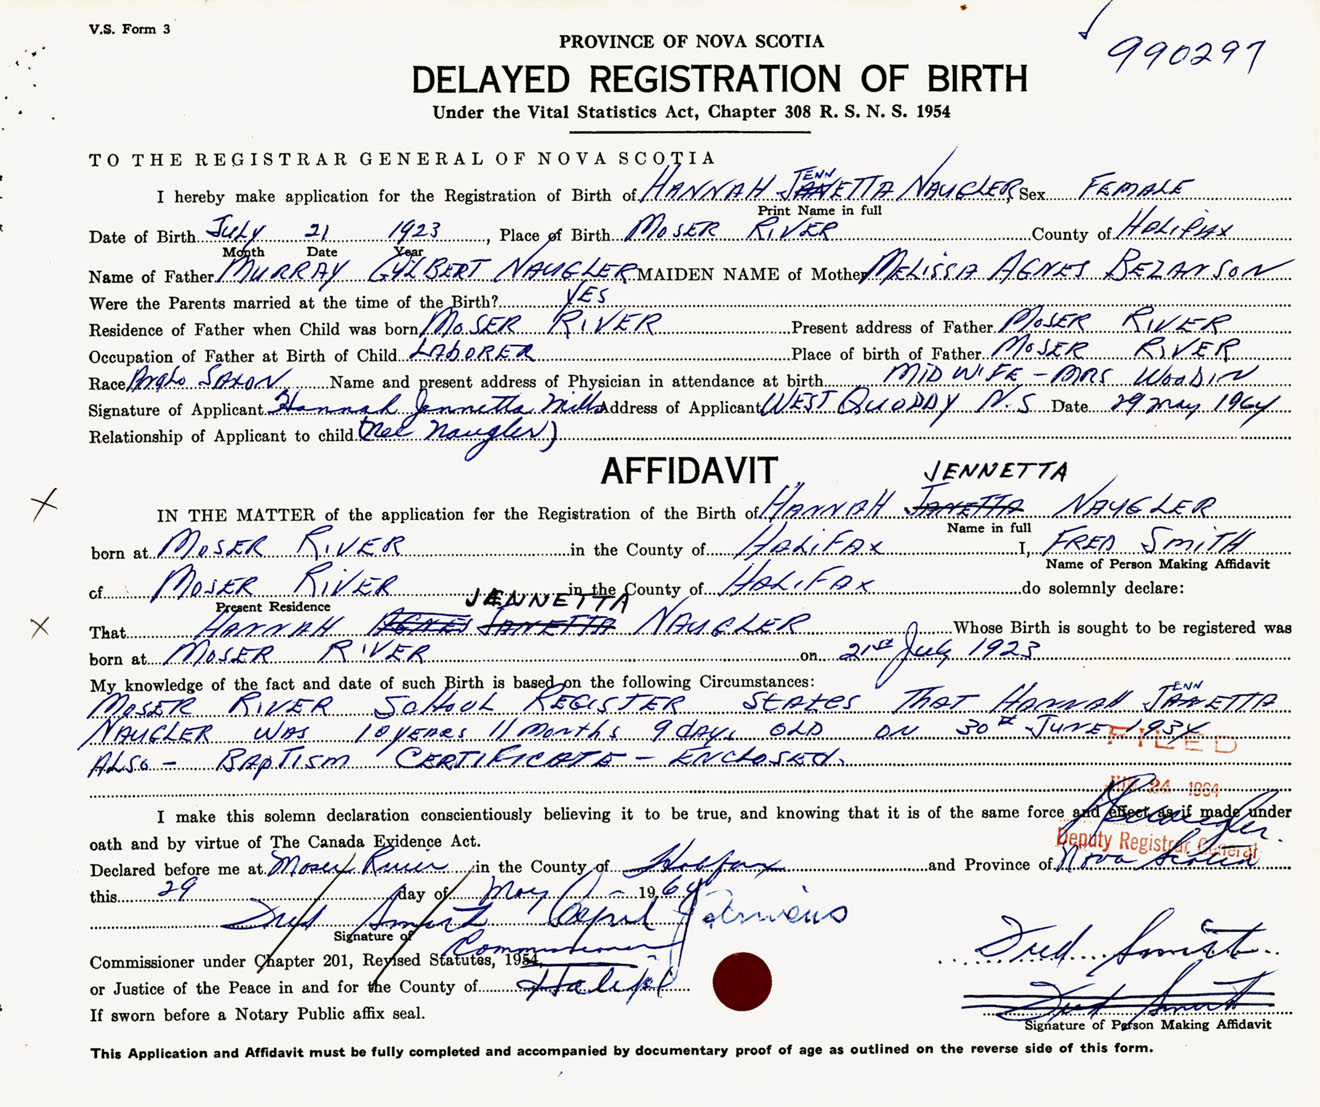 V.S. Form 3
990297
PROVINCE OF NOVA SCOTIA
DELAYED REGISTRATION OF BIRTH
Under the Vital Statistics Act, Chapter 308 R. S. N. S. 1954
TO THE REGISTRAR GENERAL OF NOVA SCOTIA
I hereby make application for the Registration of Birth of HANNAH JENNETTA NAUGLER Sex FEMALE
Print Name in full
Date of Birth JULY 21 1923, Place of Birth MOSER RIVER County of HALIFAX
Month Date Year
Name of Father MURRAY GYLBERT NAUGLER MAIDEN NAME of Mother MELISSA AGNES BEZANSON
Were the Parents married at the time of the Birth? YES
Residence of Father when Child was born MOSER RIVER Present address of Father MOSER RIVER
Occupation of Father at Birth of Child LABORER Place of birth of Father MOSER RIVER
Race Anglo SAXON Name and present address of Physician in attendance at birth MIDWIFE - MRS WOODIN
Signature of Applicant Hannah Jennetta Mills Address of Applicant WEST QUODDY N.S Date 29 May 1964
Relationship of Applicant to child (Nee Naugler)
AFFIDAVIT
JENNETTA
IN THE MATTER of the application for the Registration of the Birth of HANNAH JANETTA NAUGLER
Name in full
born at MOSER RIVER in the County of HALIFAX I, FRED SMITH
Name of Person Making Affidavit
of MOSER RIVER in the County of HALIFAX do solemnly declare:
Present Residence
JENNETTA
That HANNAH AGNES JANETTA NAUGLER Whose Birth is sought to be registered was
born at MOSER RIVER on 21st July 1923
My knowledge of the fact and date of such Birth is based on the following Circumstances:
MOSER RIVER SCHOOL REGISTER STATES THAT HANNAH JENNETTA
NAUGLER WAS 10 years 11 Months 9 days OLD ON 30th JUNE 1934
ALSO - BAPTISM CERTIFICATE - ENCLOSED.
FILED
24 1964
I make this solemn declaration conscientiously believing it to be true, and knowing that it is of the same force and effect as if made under
Deputy Registrar General
oath and by virtue of The Canada Evidence Act.
Declared before me at Moser River in the County of Halifax and Province of Nova Scotia
this 29 day of May 1964
Fred Smith
Signature of
Commissioner
Commissioner under Chapter 201, Revised Statutes, 1954,
Fred Smith
or Justice of the Peace in and for the County of Halifax
Fred Smith
Signature of Person Making Affidavit
If sworn before a Notary Public affix seal.
This Application and Affidavit must be fully completed and accompanied by documentary proof of age as outlined on the reverse side of this form.